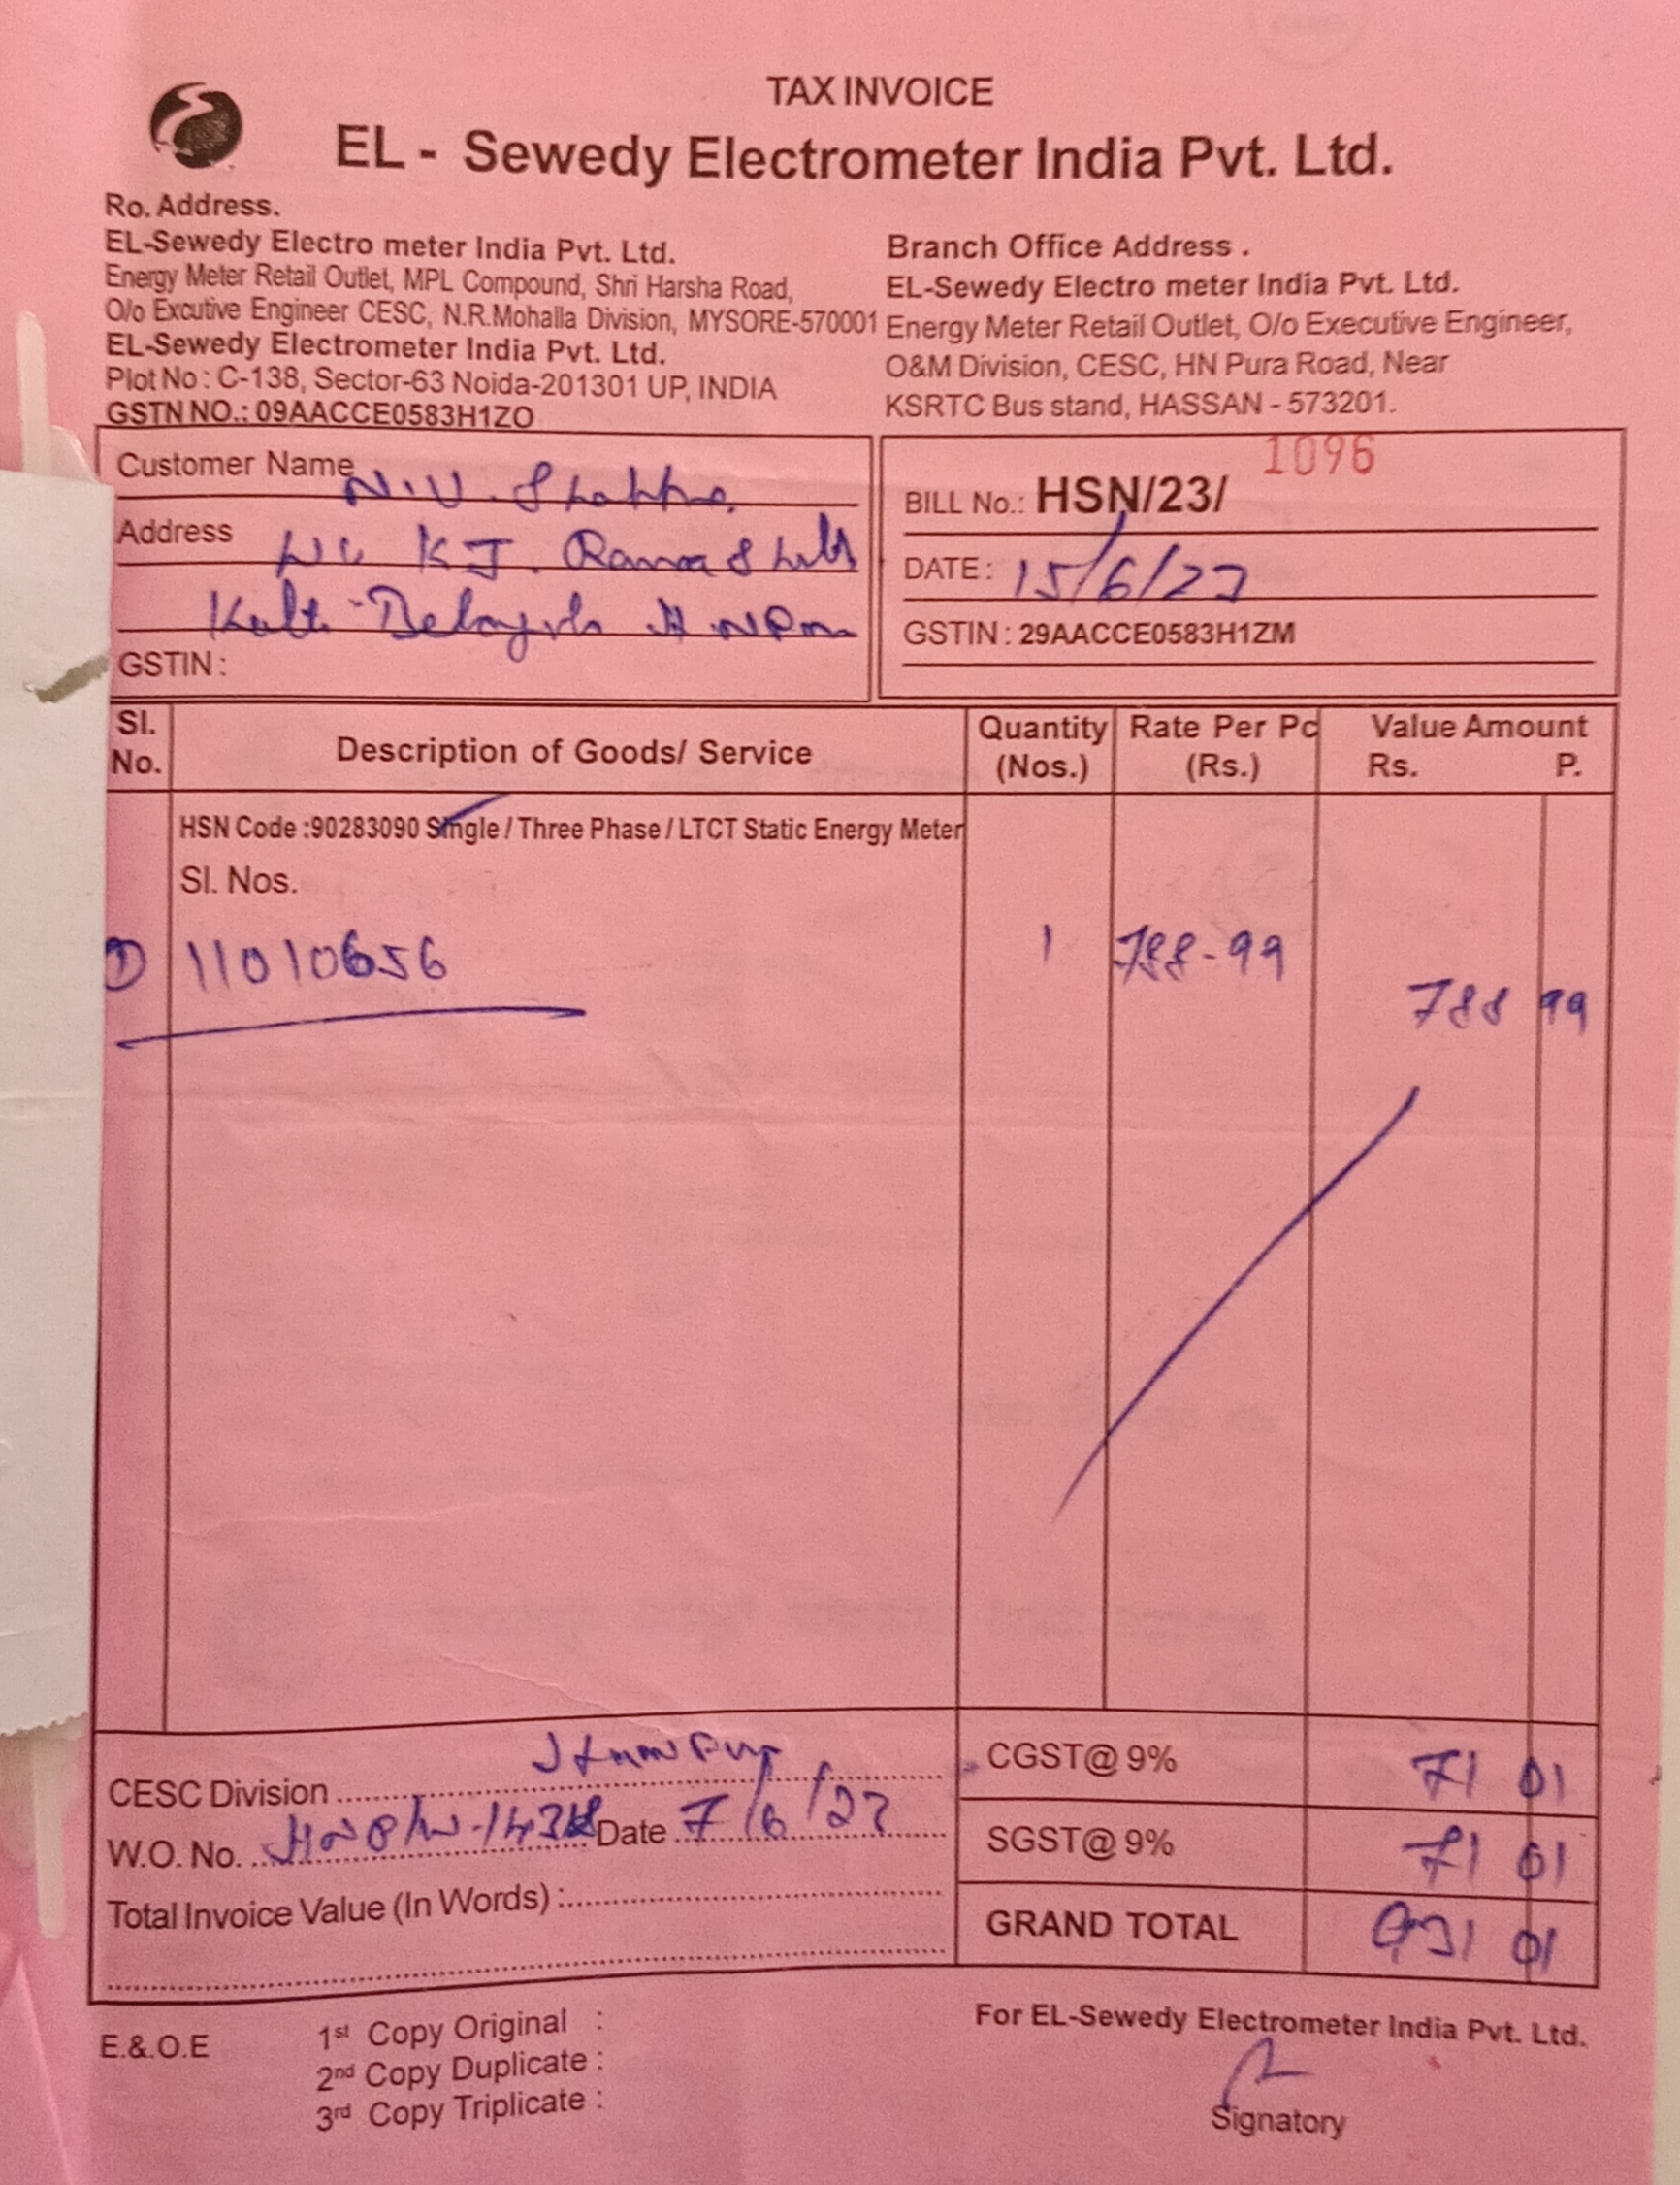 TAX INVOICE
EL - Sewedy Electrometer India Pvt. Ltd.
Ro. Address.
EL-Sewedy Electro meter India Pvt. Ltd.
Energy Meter Retail Outlet, MPL Compound, Shri Harsha Road,
O/o Excutive Engineer CESC, N.R.Mohalla Division, MYSORE-570001
EL-Sewedy Electrometer India Pvt. Ltd.
Plot No : C-138, Sector-63 Noida-201301 UP, INDIA
GSTN NO.: 09AACCE0583H1ZO
Branch Office Address .
EL-Sewedy Electro meter India Pvt. Ltd.
Energy Meter Retail Outlet, O/o Executive Engineer,
O&M Division, CESC, HN Pura Road, Near
KSRTC Bus stand, HASSAN - 573201.
Customer Name N.U.
Address K J. Rama
GSTIN :
1096
BILL No.: HSN/23/
DATE : 15/6/23
GSTIN : 29AACCE0583H1ZM
Sl. No. Description of Goods/ Service Quantity (Nos.) Rate Per Pc (Rs.) Value Amount Rs. P.
HSN Code :90283090 Single / Three Phase / LTCT Static Energy Meter
Sl. Nos.
1 11010656 1 788-99 788 99
CESC Division
W.O. No. Date 7/6/23
Total Invoice Value (In Words) :
CGST@ 9% 71 01
SGST@ 9% 71 01
GRAND TOTAL 931 01
E.&.O.E
1st Copy Original :
2nd Copy Duplicate :
3rd Copy Triplicate :
For EL-Sewedy Electrometer India Pvt. Ltd.
Signatory